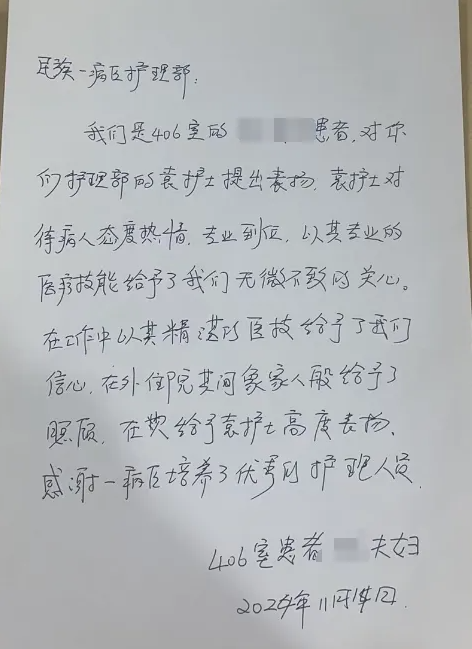 民族一病区护理部:
我们是406室的 患者,对你
们护理部的袁护士提出表扬,袁护士对
待病人态度热情,专业到位,以其专业的
医疗技能给予了我们无微不致的关心。
在工作中以其精湛的医技给予了我们
信心,在外住院其间象家人般给予了
照顾,在此给予袁护士高度表扬,
感谢一病区培养了优秀的护理人员.
406室患者 夫妇
2024年11月14日.